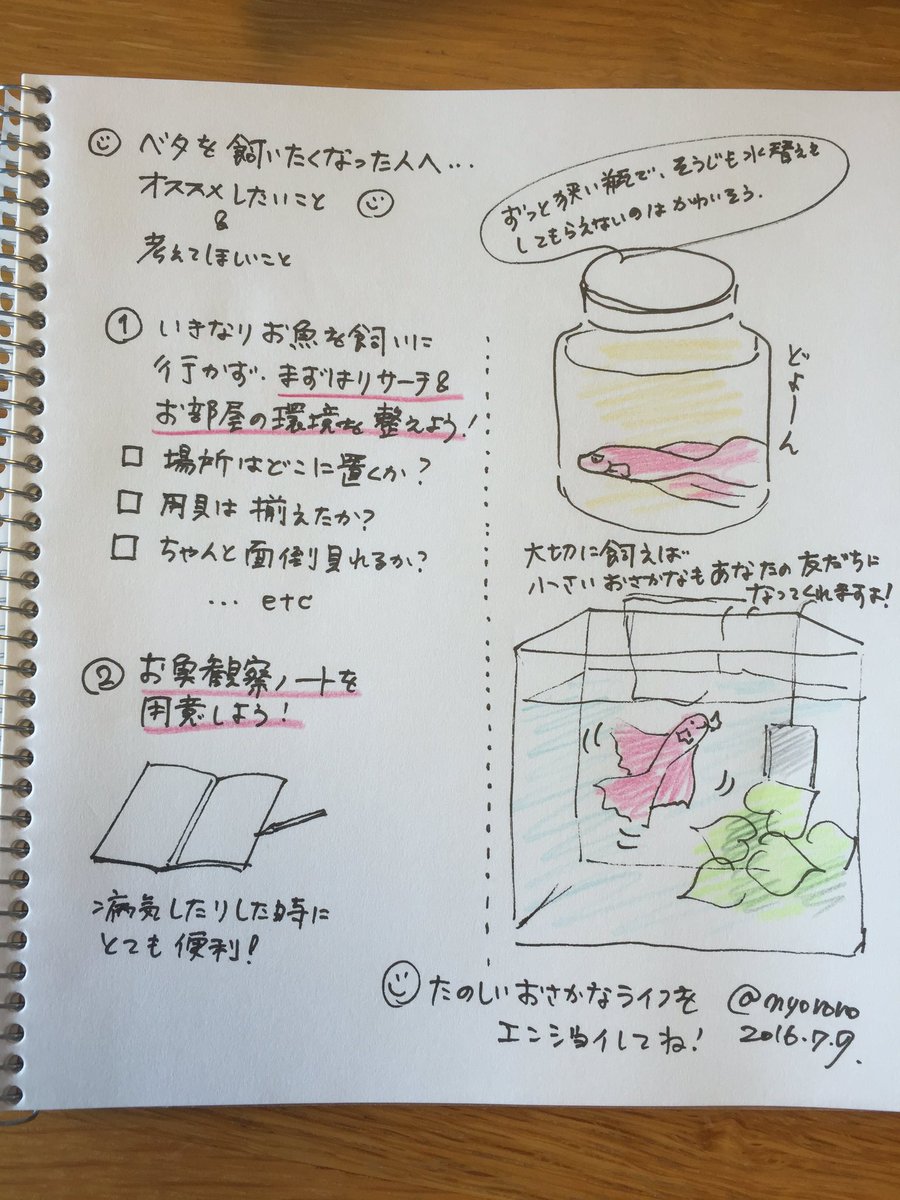 ベタを飼いたくなった人へ...
オススメしたいこと
&
考えてほしいこと
① いきなりお魚を飼いに
行かず、まずはリサーチ&
お部屋の環境を整えよう!
□ 場所はどこに置くか?
□ 用具は揃えたか?
□ ちゃんと面倒見れるか?
... etc
② お魚観察ノートを
用意しよう!
病気したりした時に
とても便利!
ずっと狭い瓶で、そうじも水替えも
してもらえないのはかわいそう.
どよーん
大切に飼えば
小さいおさかなもあなたの友だちに
なってくれますよ!
たのしいおさかなライフを
エンジョイしてね!
@myororo
2016.7.9.